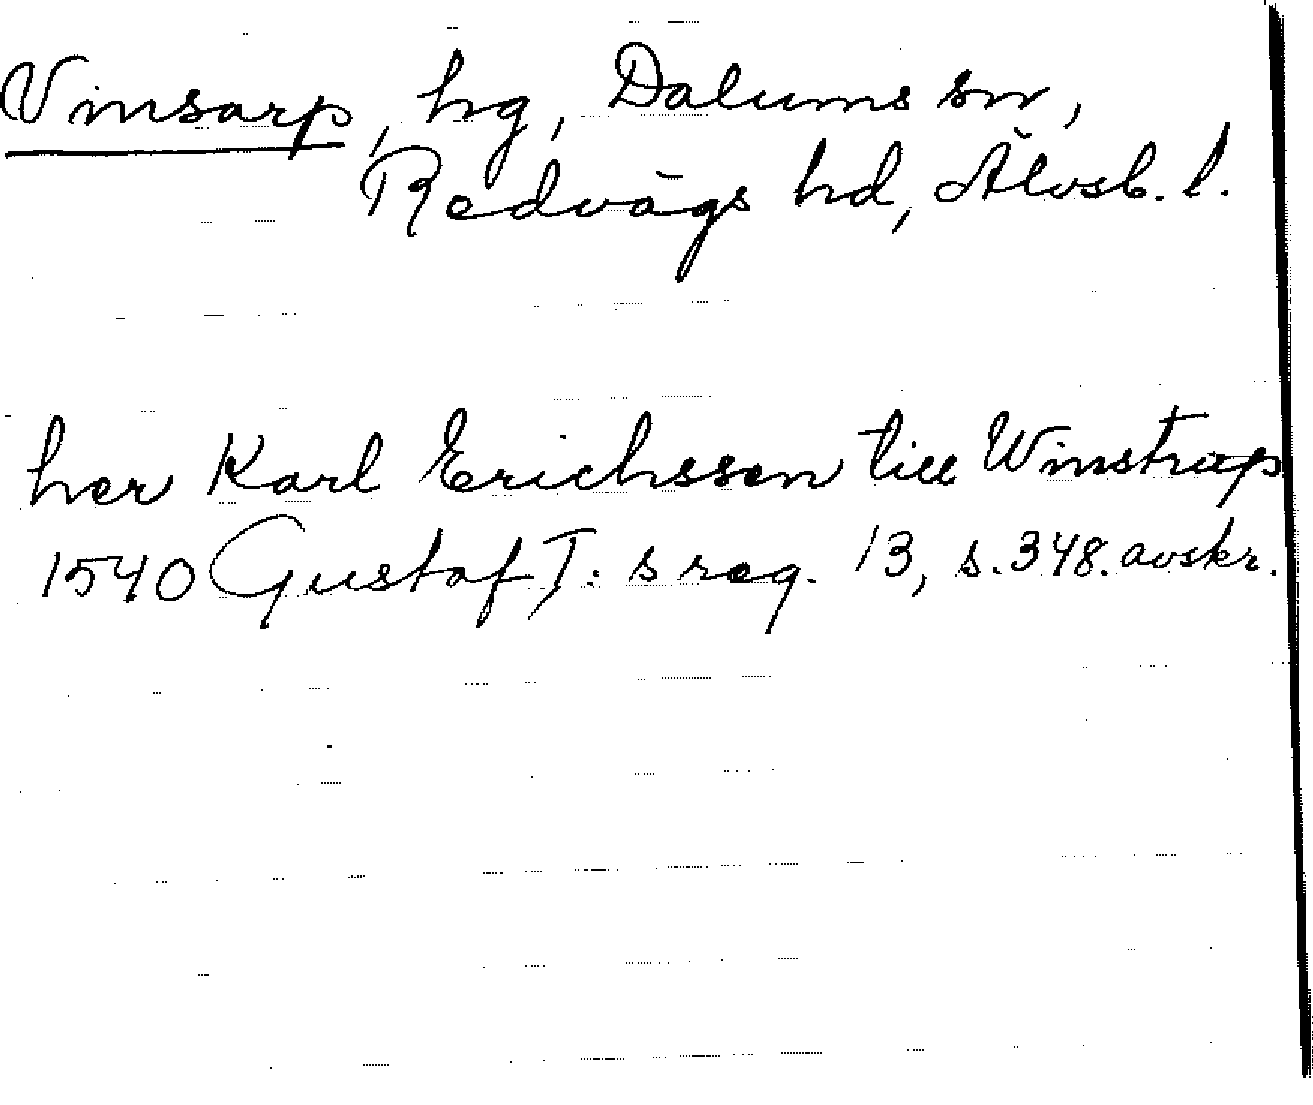 Vinsarp, hg, Dalums sn,
Redvägs hd, Älvsb. l.
her Karl Erichssen till Winstrup
1540 Gustaf I: s reg. 13, s. 348. avskr.